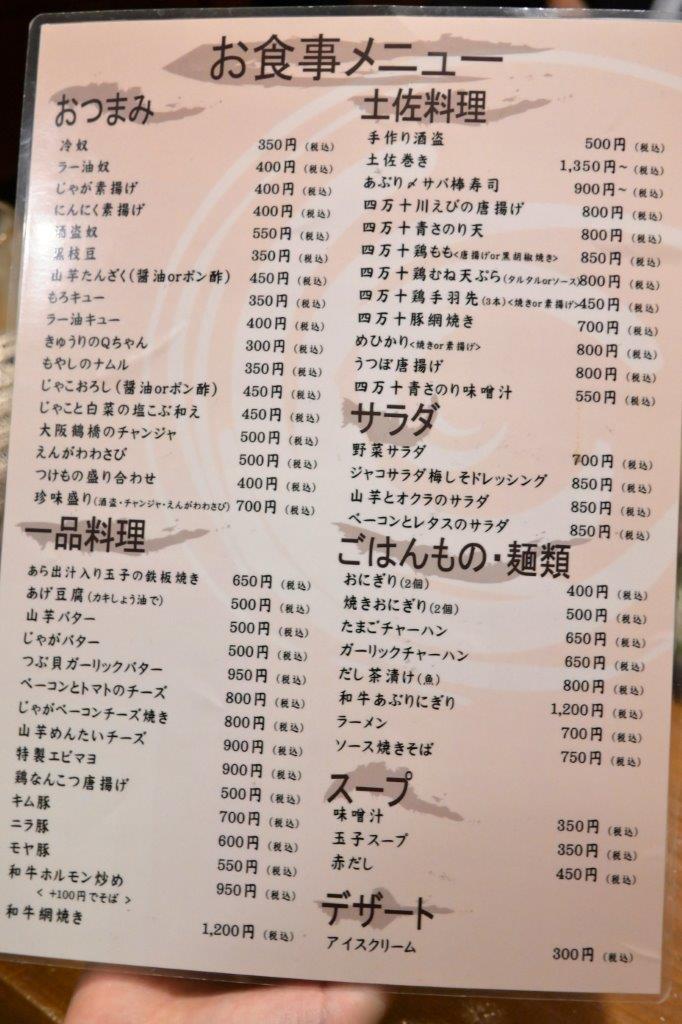 お食事メニュー
おつまみ
冷奴 350円(税込)
ラー油奴 400円(税込)
じゃが素揚げ 400円(税込)
にんにく素揚げ 400円(税込)
酒盗奴 550円(税込)
黒枝豆 350円(税込)
山芋たんざく(醤油orポン酢) 450円(税込)
もろキュー 350円(税込)
ラー油キュー 400円(税込)
きゅうりのQちゃん 300円(税込)
もやしのナムル 350円(税込)
じゃこおろし(醤油orポン酢) 450円(税込)
じゃこと白菜の塩こぶ和え 450円(税込)
大阪鶴橋のチャンジャ 500円(税込)
えんがわわさび 500円(税込)
つけもの盛り合わせ 400円(税込)
珍味盛り(酒盗・チャンジャ・えんがわわさび) 700円(税込)
一品料理
あら出汁入り玉子の鉄板焼き 650円(税込)
あげ豆腐(カキしょう油で) 500円(税込)
山芋バター 500円(税込)
じゃがバター 500円(税込)
つぶ貝ガーリックバター 950円(税込)
ベーコンとトマトのチーズ 800円(税込)
じゃがベーコンチーズ焼き 800円(税込)
山芋めんたいチーズ 900円(税込)
特製エビマヨ 900円(税込)
鶏なんこつ唐揚げ 500円(税込)
キム豚 700円(税込)
ニラ豚 600円(税込)
モヤ豚 550円(税込)
和牛ホルモン炒め 950円(税込)
< +100円でそば >
和牛網焼き 1,200円(税込)
土佐料理
手作り酒盗 500円(税込)
土佐巻き 1,350円~(税込)
あぶり〆サバ棒寿司 900円~(税込)
四万十川えびの唐揚げ 800円(税込)
四万十青さのり天 800円(税込)
四万十鶏もも<唐揚げor黒胡椒焼き> 850円(税込)
四万十鶏むね天ぷら(タルタルorソース) 800円(税込)
四万十鶏手羽先(3本)<焼きor素揚げ> 450円(税込)
四万十豚網焼き 700円(税込)
めひかり<焼きor素揚げ> 800円(税込)
うつぼ唐揚げ 800円(税込)
四万十青さのり味噌汁 550円(税込)
サラダ
野菜サラダ 700円(税込)
ジャコサラダ梅しそドレッシング 850円(税込)
山芋とオクラのサラダ 850円(税込)
ベーコンとレタスのサラダ 850円(税込)
ごはんもの・麺類
おにぎり(2個) 400円(税込)
焼きおにぎり(2個) 500円(税込)
たまごチャーハン 650円(税込)
ガーリックチャーハン 650円(税込)
だし茶漬け(魚) 800円(税込)
和牛あぶりにぎり 1,200円(税込)
ラーメン 700円(税込)
ソース焼きそば 750円(税込)
スープ
味噌汁 350円(税込)
玉子スープ 350円(税込)
赤だし 450円(税込)
デザート
アイスクリーム 300円(税込)